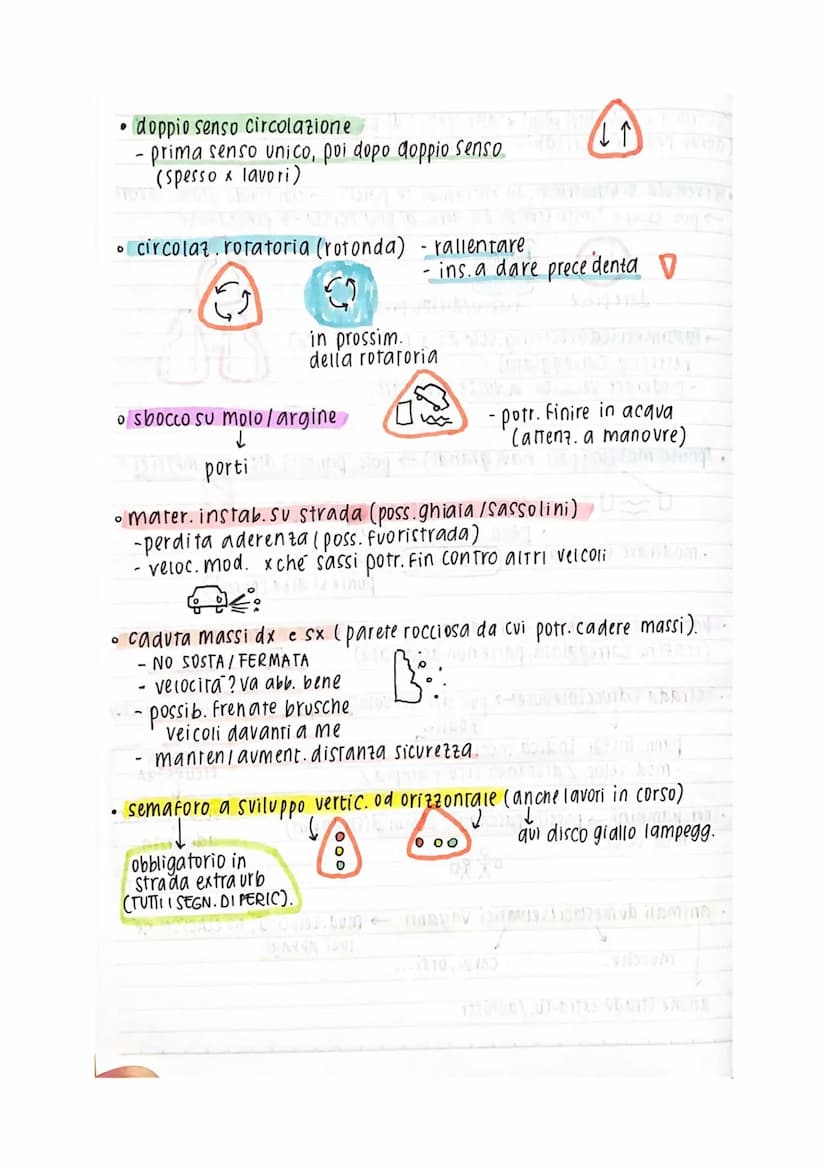 • doppio senso circolazione
- prima senso unico, poi dopo doppio senso.
(spesso x lavori)
• circolaz. rotatoria (rotonda) - rallentare
- ins. a dare precedenta
in prossim.
della rotatoria
• sbocco su molo/argine
- potr. finire in acqua
(attenz. a manovre)
porti
• mater. instab. su strada (poss. ghiaia/sassolini)
- perdita aderenza (poss. fuoristrada)
- veloc. mod. x ché sassi potr. fin contro altri veicoli
• caduta massi dx e sx (parete rocciosa da cui potr. cadere massi).
- NO SOSTA/FERMATA
- velocità? va abb. bene
- possib. frenate brusche
veicoli davanti a me
- manten/aument. distanza sicurezza.
• semaforo a sviluppo vertic. od orizzontale (anche lavori in corso)
qui disco giallo lampegg.
obbligatorio in
strada extraurb
(TUTTI I SEGN. DI PERIC).